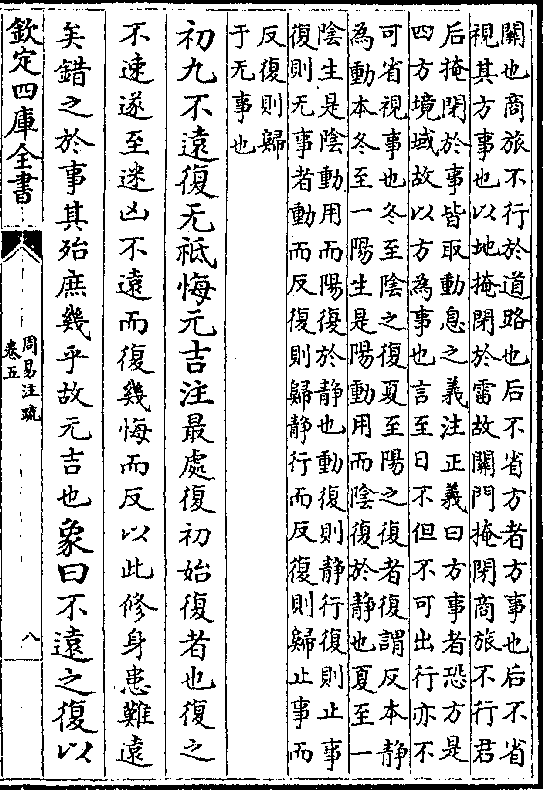 關也商旅不行於道路也后不省方者方事也后不省
視其方事也以地掩閉於雷故關門掩閉商旅不行君
后掩閉於事皆取動息之義注正義曰方事者恐方是
四方境域故以方為事也言至日不但不可出行亦不
可省視事也冬至陰之復夏至陽之復者復謂反本靜
為動本冬至一陽生是陽動用而陰復於靜也夏至一
陰生是陰動用而陽復於靜也動復則靜行復則止事
復則无事者動而反復則歸靜行而反復則歸止事而
反復則歸
于无事也
初九不遠復无祗悔元吉注最處復初始復者也復之
不速遂至迷凶不遠而復幾悔而反以此修身患難遠
矣錯之於事其殆庶幾乎故元吉也象曰不遠之復以
欽定四庫全書
周易注疏
卷五
八